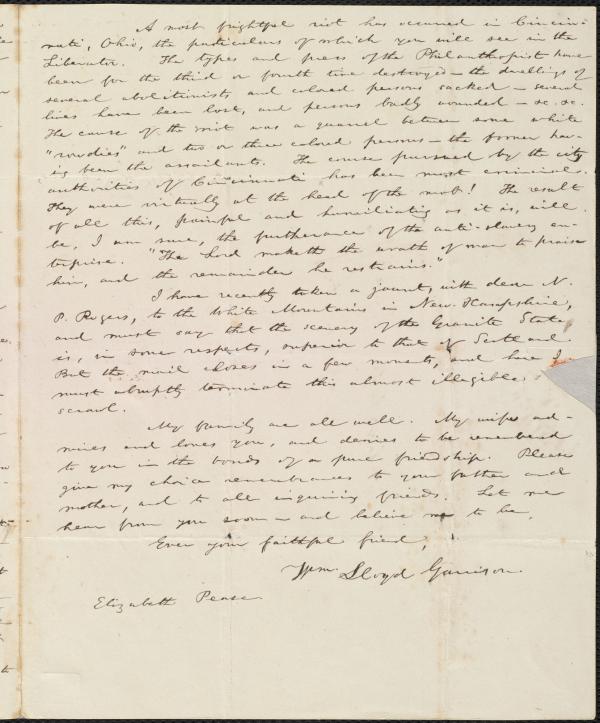 A most frightful riot has occurred in Cincin-
nati, Ohio, the particulars of which you will see in the
Liberator. The types and press of the Philanthropist have
been for the third or fourth time destroyed – the dwellings of
several abolitionists and colored persons sacked – several
lives have been lost, and persons badly wounded – &c. &c.
The cause of the riot was a quarrel between some white
"rowdies" and two or three colored persons – the former hav-
ing been the assailants. The course pursued by the city
authorities of Cincinnati has been most criminal.
They were virtually at the head of the mob! The result
of all this, painful and humiliating as it is, will
be, I am sure, the furtherance of the anti-slavery en-
terprise. "The Lord maketh the wrath of man to praise
him, and the remainder he restrains."
I have recently taken a jaunt, with dear N.
P. Rogers, to the White Mountains in New-Hampshire,
and must say that the scenery of the Granite State
is, in some respects, superior to that of Scotland.
But the mail closes in a few moments, and here I
must abruptly terminate this almost illegible
scrawl.
My family are all well. My wife ad-
mires and loves you, and desires to be remembered
to you in the bonds of a pure friendship. Please
give my choice remembrances to your father and
mother, and to all inquiring friends. Let me
hear from you soon – and believe me to be,
Ever your faithful friend,
Wm. Lloyd Garrison.
Elizabeth Pease.